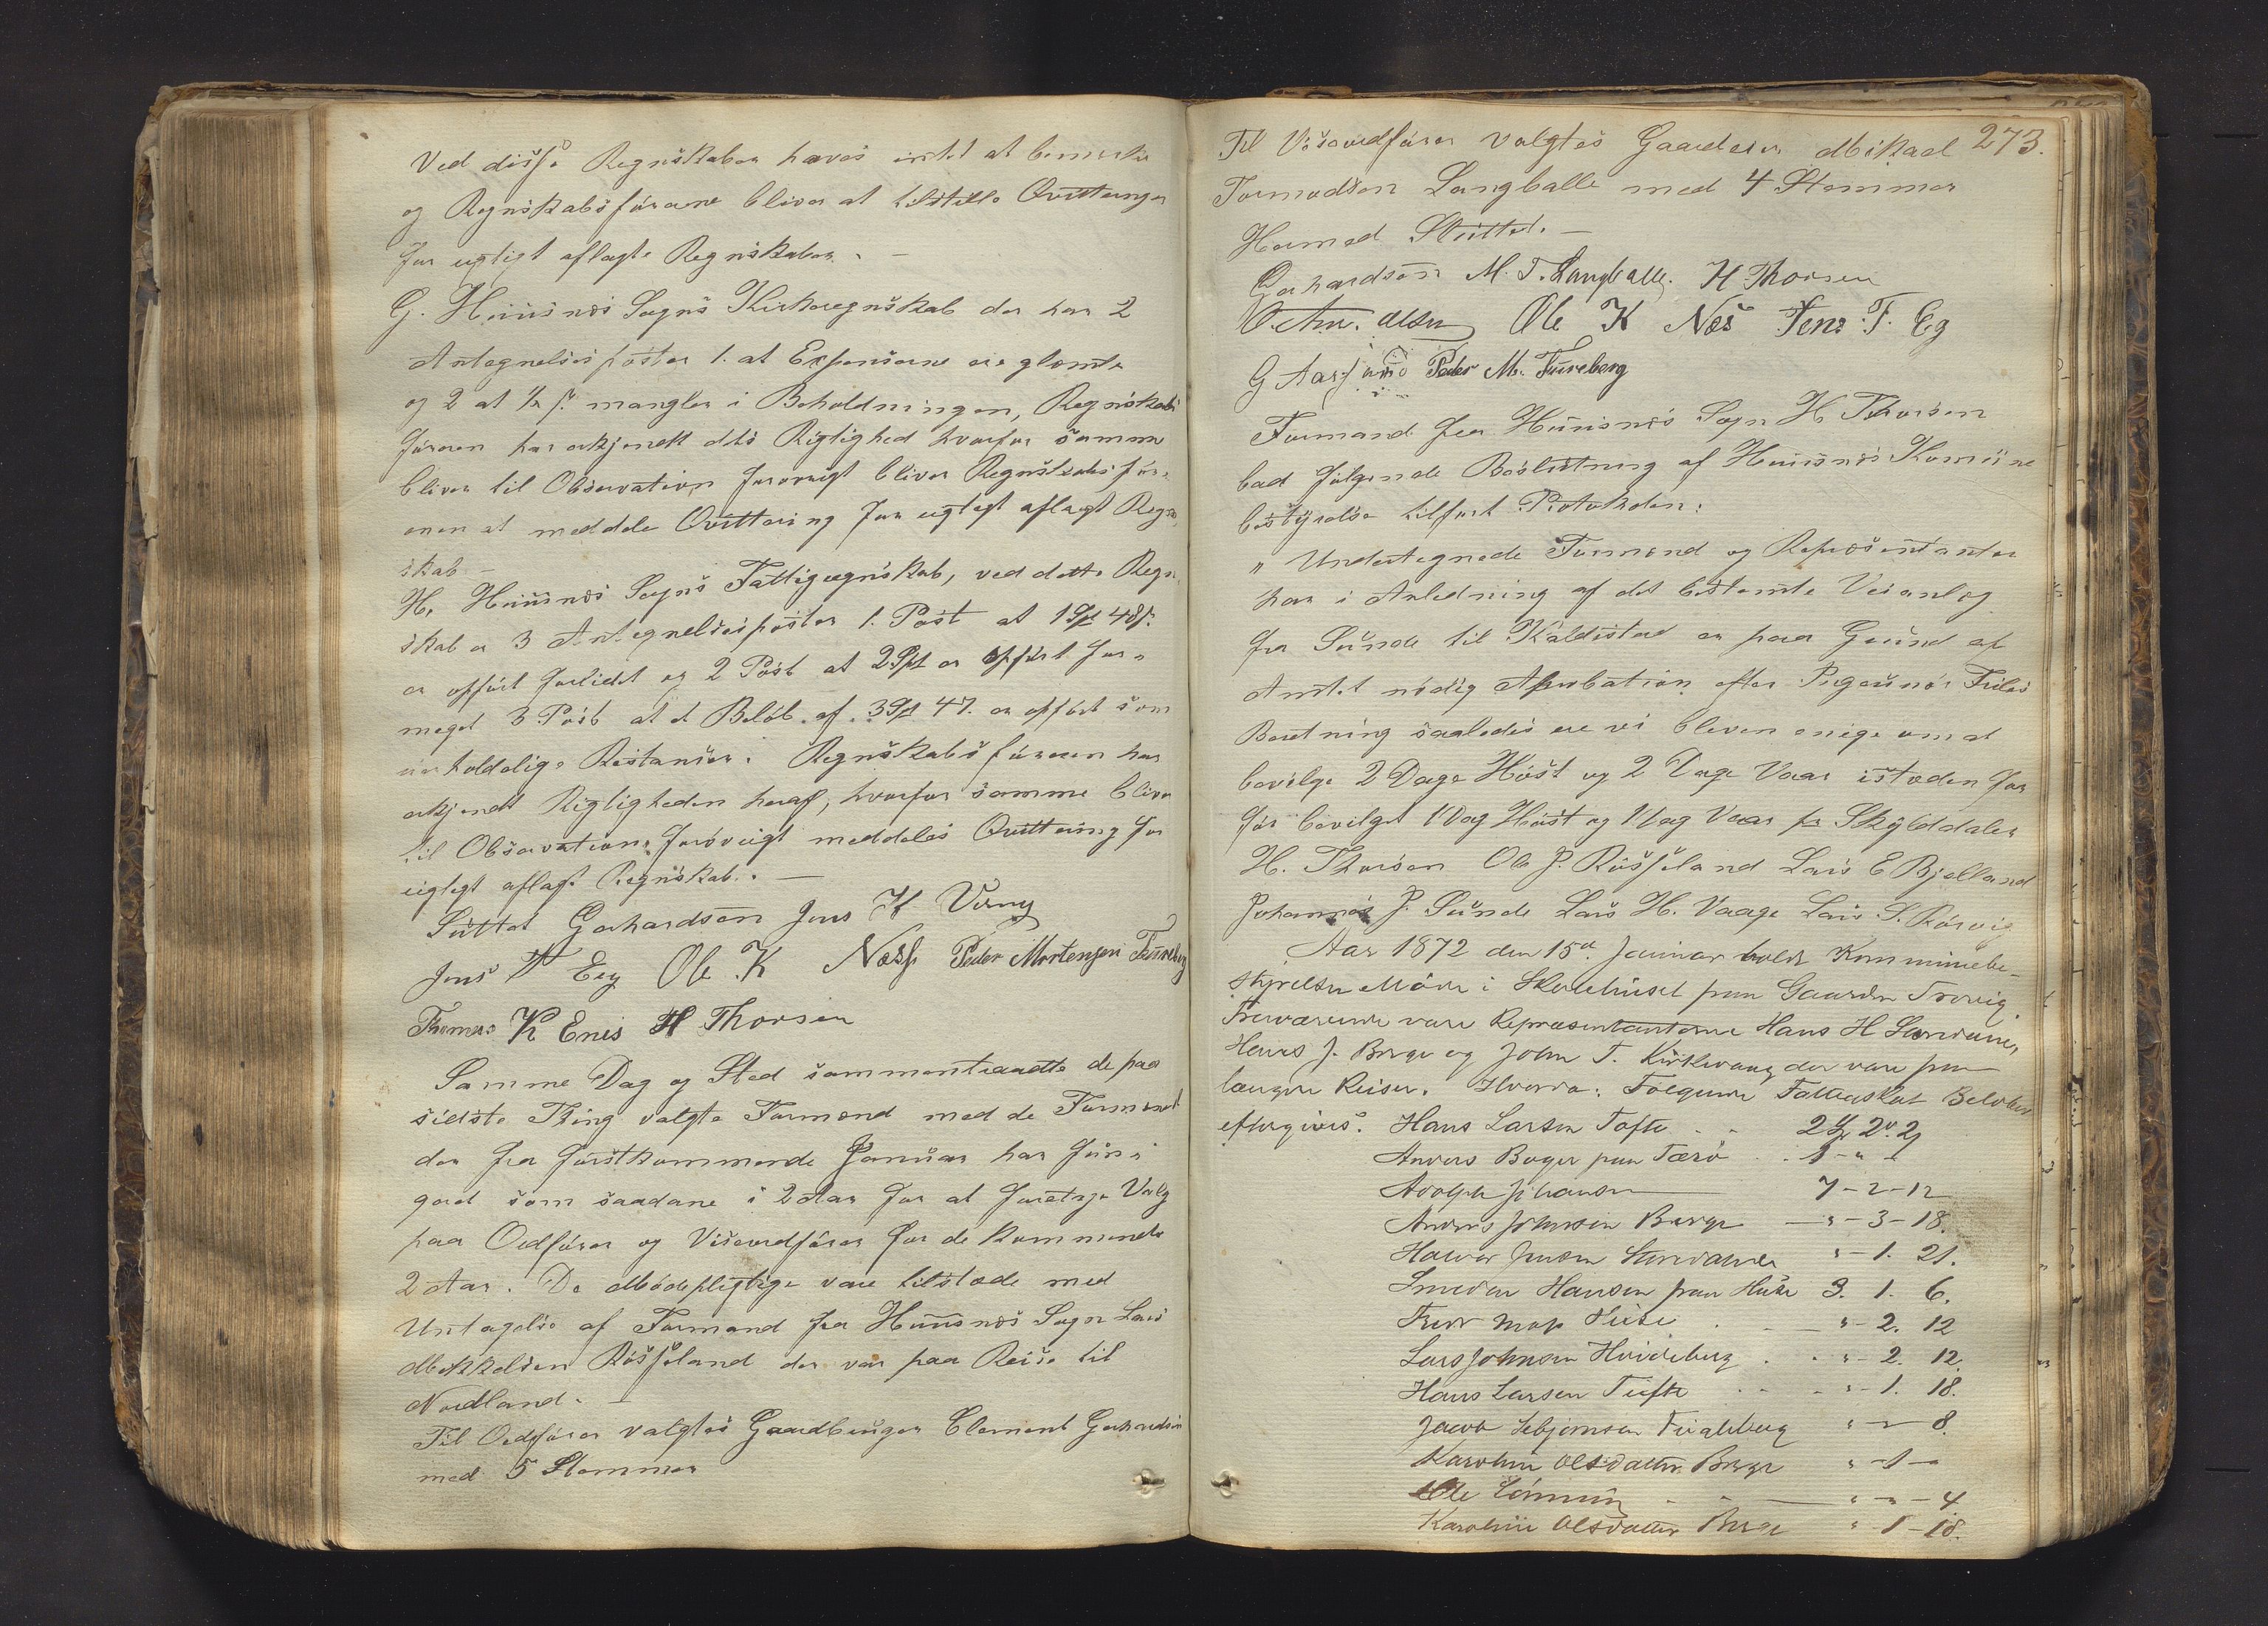 Ved disse Regnskaber haves intet at bemerke
og Regnskabsførerne bliver at tilstille Qvitteringer
for rigtigt aflagte Regnskaber. —
G. Huusnæs Sogns Kirkeregnskab der har 2
Antegnelsesposter 1. at Expenserne ere glemte
og 2 at ½ ſ. mangler i Beholdningen, Regnskabs
føreren har erkjendt dets Rigtighed hvorfor samme
bliver til Observation forøvrigt bliver Regnskabsfør-
eren at meddele Qvittering for rigtigt aflagt Regn-
skab —
H. Huusnæs Sogns Fattigregnskab, ved dette Regn-
skab er 3 Antegnelsesposter 1. Post at 1 Spd 48 ſ.
er opført forlidet og 2 Post at 2 Spd er opført for-
meget 3 Post at et Beløb af 3 Spd 47. er opført som
uerholdelige Restanser. Regnskabsføreren har
erkjendt Rigtigheden heraf, hvorfor samme bliver
til Observation, forøvrigt meddeles Qvittering for
rigtigt aflagt Regnskab. —
Sluttet Gerhardsen Jens H Væng
Jens T Eeg Ole K Næss Peder Mortensen Fureberg
Thomas K Enes H Thorsen
Samme Dag og Sted sammentraadte de paa
sidste Thing valgte Formænd med de Formænd
der fra førstkommende Januar har fun-
geret som saadane i 2 Aar for at foretage Valg
paa Ordfører og Viseordfører for de kommende
2 Aar. De Mødepligtige vare tilstede med
Untagelse af Formand fra Huusnæs Sogn Lars
Mikkelsen Røssland der var paa Reise til
Nordland. —
Til Ordfører valgtes Gaardbruger Clement Gerhardsen
med 5 Stemmer
273.
Til Viseordfører valgtes Gaardeier Mikael
Tormodsen Langballe med 4 Stemmer
Hermed Sluttet. —
Gerhardsen M. T. Langballe. H Thorsen
Olsen Ole K Næs Jens T. Eg
G Peder M. Fureberg
Formand fra Huusnæs Sogn H. Thorsen
bad følgende Beslutning af Huusnæs Komune
bestyrelse tilført Protokolen:
„ Undertegnede Formænd og Repræsentanter
har i Anledning af det bestemte Veianlæg
fra Sunde til Kaldestad er paa Grund af
Amtet nødig Aprobation efter
Beretning saaledes ere vi bleven enige om at
bevilge 2 Dage Høst og 2 Dage Vaar istæden for
før bevilget 1 Dag Høst og 1 Dag Vaar pr Skylddaler
H. Thorsen Ole J. Røssland Lars E Bjelland
Johannes J. Sunde Lars H. Vaage Lars S. Rørvig
Aar 1872 den 15de Januar holdt Kommunebe-
styrelsen Møde i Skolehuset paa Gaarden
Fraværende vare Repræsentanterne Hans H Sandvand,
Hans J. Berge og John T. Kirkevang der vare paa
længere Reiser. Hvorda: Følgende Fattigskat Beløber
eftergives. Hans Larsen Tofte - - 2 Spd 2 o. 21
Anders Boger paa Tærø - . 1 - " -
Adolph Johansen — 7 - 2 - 12
Anders Johnsen Berge — " - 3 - 18.
Halvor Jensen Sundvands " - 1. 21.
Smeden Hansen paa Huse 3. 1. 6.
Huse . — " - 2. 12
Lars Johnsen Hvideberg . . " - 2. 12.
Hans Larsen Tufte - - - " - 1. 18.
Jacob Fureberg " - " - 8.
Karoline Olsdatter Berge " - 1 - "
Ole - - — " - " - 4
Karoline Olsdatter Berge " - 1 - 18.